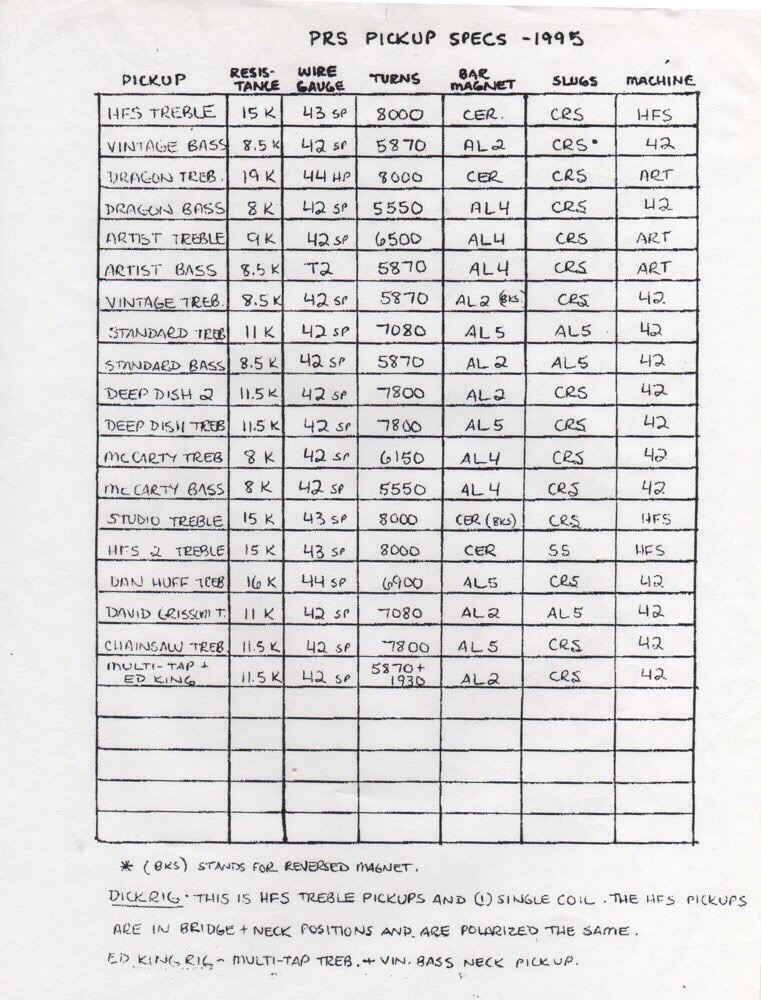 PRS PICKUP SPECS -1995
PICKUP RESIS-TANCE WIRE GAUGE TURNS BAR MAGNET SLUGS MACHINE
HFS TREBLE 15 K 43 SP 8000 CER. CRS HFS
VINTAGE BASS 8.5 K 42 SP 5870 AL 2 CRS• 42
DRAGON TREB. 19 K 44 HP 8000 CER CRS ART
DRAGON BASS 8 K 42 SP 5550 AL 4 CRS 42
ARTIST TREBLE 9 K 42 SP 6500 AL4 CRS ART
ARTIST BASS 8.5 K T2 5870 AL4 CRS ART
VINTAGE TREB. 8.5 K 42 SP 5870 AL 2 (BKS) CRS 42
STANDARD TREB 11 K 42 SP 7080 AL 5 AL 5 42
STANDARD BASS 8.5 K 42 SP 5870 AL 2 AL 5 42
DEEP DISH 2 11.5 K 42 SP 7800 AL 2 CRS 42
DEEP DISH TREB 11.5 K 42 SP 7800 AL 5 CRS 42
MCCARTY TREB 8 K 42 SP 6150 AL4 CRS 42
MCCARTY BASS 8 K 42 SP 5550 AL 4 CRS 42
STUDIO TREBLE 15 K 43 SP 8000 CER (BKS) CRS HFS
HFS 2 TREBLE 15 K 43 SP 8000 CER SS HFS
DAN HUFF TREB 16 K 44 SP 6900 AL5 CRS 42
DAVID GRISSOM T. 11 K 42 SP 7080 AL 2 AL 5 42
CHAINSAW TREB. 11.5 K 42 SP 7800 AL 5 CRS 42
MULTI-TAP +
ED KING 11.5 K 42 SP 5870+ 1930 AL2 CRS 42
* (BKS) STANDS FOR REVERSED MAGNET.
DICK RIG - THIS IS HFS TREBLE PICKUPS AND (1) SINGLE COIL. THE HFS PICKUPS
ARE IN BRIDGE + NECK POSITIONS AND ARE POLARIZED THE SAME.
ED KING RIG - MULTI-TAP TREB. + VIN. BASS NECK PICKUP.